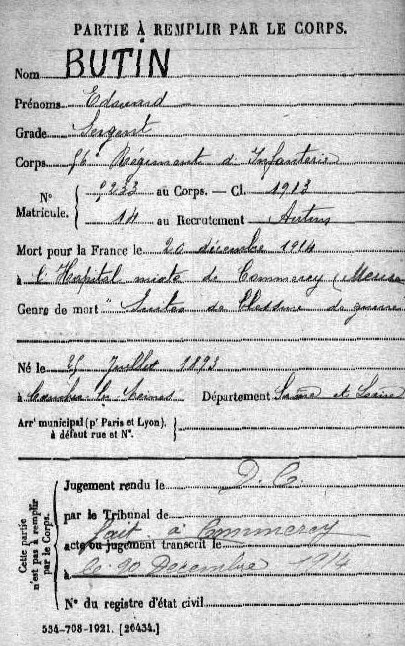 PARTIE À REMPLIR PAR LE CORPS.
Nom BUTIN
Prénoms Edouard
Grade Sergent
Corps 56e Régiment d'Infanterie
N° Matricule. 9233 au Corps. — Cl. 1913
14 au Recrutement Autun
Mort pour la France le 20 décembre 1914
à l'Hopital mixte de Commercy (Meuse
Genre de mort "Suites de blessure de guerre"
Né le 25 Juillet 1893
à les Mines Département Saône et Loire
Arrt municipal (pr Paris et Lyon),
à défaut rue et N°.
Cette partie
n'est pas à remplir
par le Corps.
Jugement rendu le D.C.
par le Tribunal de
fait à Commercy
acte ou jugement transcrit le
à le 20 Decembre 1914
N° du registre d'état civil
534-708-1921. [26434.]